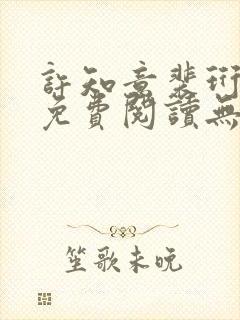 許知意裴珩
免費閱讀無
笙歌未晚